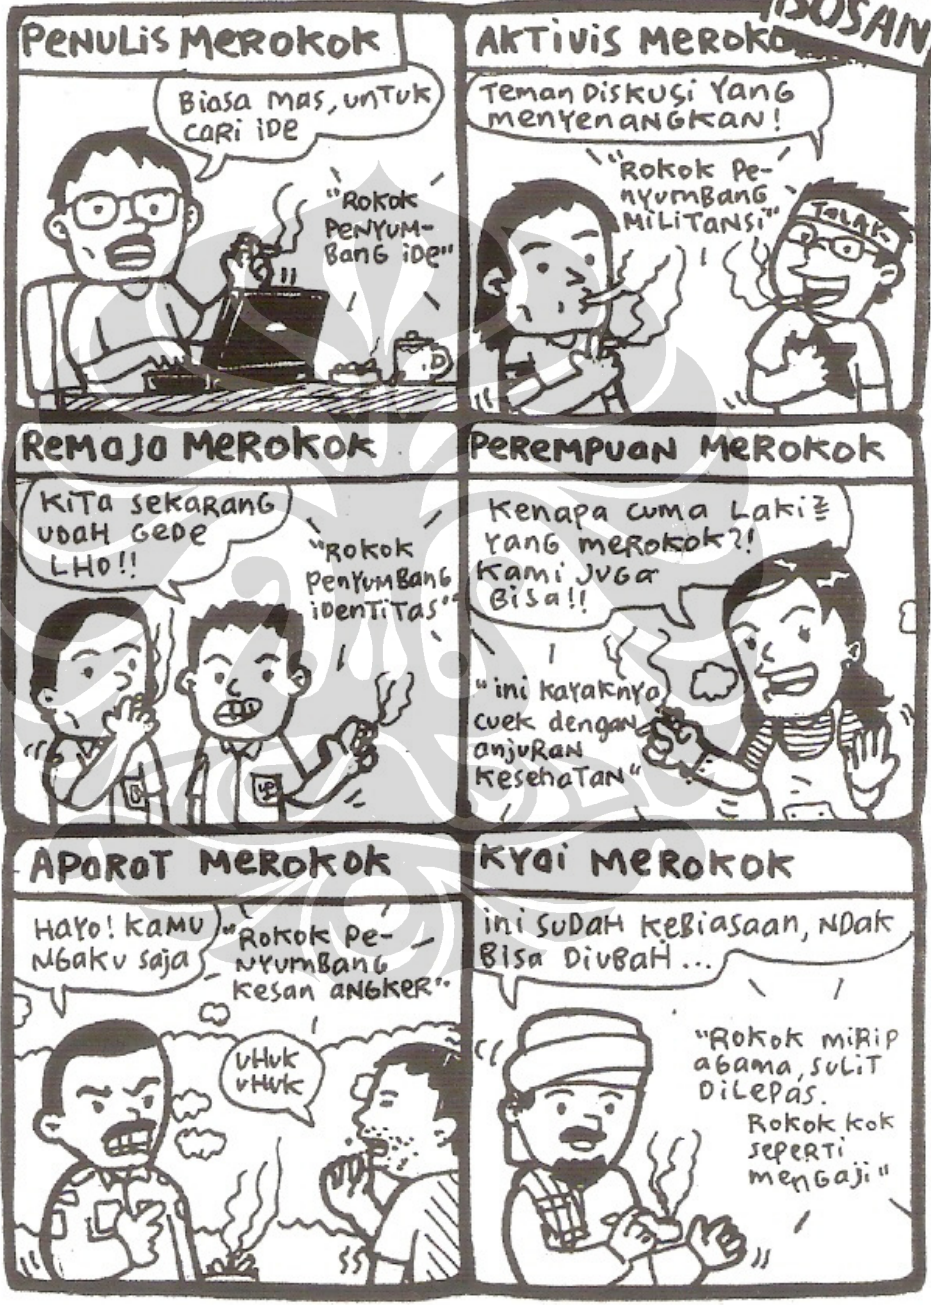 BOSAN
PENULIS MEROKOK
Biasa mas, untuk
cari ide
"Rokok
penyum-
bang ide"
AKTIVIS MEROKO
Teman diskusi yang
menyenangkan!
"Rokok pe-
nyumbang
militansi"
TOLAK
REMAJA MEROKOK
Kita sekarang
udah gede
lho!!
"Rokok
penyumbang
identitas"
PEREMPUAN MEROKOK
Kenapa cuma laki2
yang merokok?!
Kami juga
bisa!!
"ini kayaknya
cuek dengan
anjuran
kesehatan"
APARAT MEROKOK
Hayo! kamu
ngaku saja
"Rokok pe-
nyumbang
kesan angker"
uhuk
uhuk
KYAI MEROKOK
ini sudah kebiasaan, ndak
bisa diubah...
"Rokok mirip
agama, sulit
dilepas.
Rokok kok
seperti
mengaji"